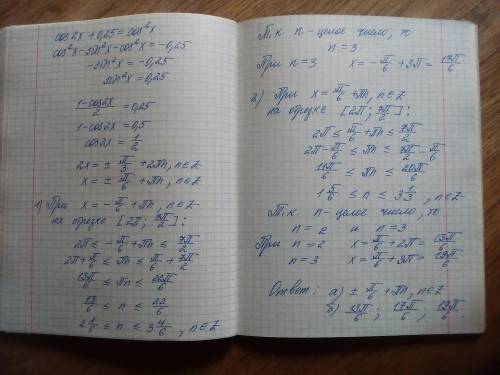 cos2x + 0,25 = cos²x
cos²x - sin²x - cos²x = -0,25
-sin²x = -0,25
sin²x = 0,25
(1-cos2x)/2 = 0,25
1-cos2x = 0,5
cos2x = 1/2
2x = ± π/3 + 2πn, n∈Z
x = ± π/6 + πn, n∈Z
1) При x = -π/6 + πn, n∈Z
на отрезке [2π; 7π/2]:
2π ≤ -π/6 + πn ≤ 7π/2
2π + π/6 ≤ πn ≤ π/6 + 7π/2
13π/6 ≤ πn ≤ 22π/6
13/6 ≤ n ≤ 22/6
2 1/6 ≤ n ≤ 3 4/6, n∈Z
Т.к. n - целое число, то
n = 3
При n=3 x = -π/6 + 3π = 17π/6
2) При x = π/6 + πn, n∈Z
на отрезке [2π; 7π/2]:
2π ≤ π/6 + πn ≤ 7π/2
2π - π/6 ≤ πn ≤ 7π/2 - π/6
11π/6 ≤ πn ≤ 20π/6
1 5/6 ≤ n ≤ 3 1/3, n∈Z
Т.к. n - целое число, то
n = 2 и n = 3
При n=2 x = π/6 + 2π = 13π/6
n=3 x = π/6 + 3π = 19π/6
Ответ: а) ± π/6 + πn, n∈Z
б) 13π/6; 17π/6; 19π/6